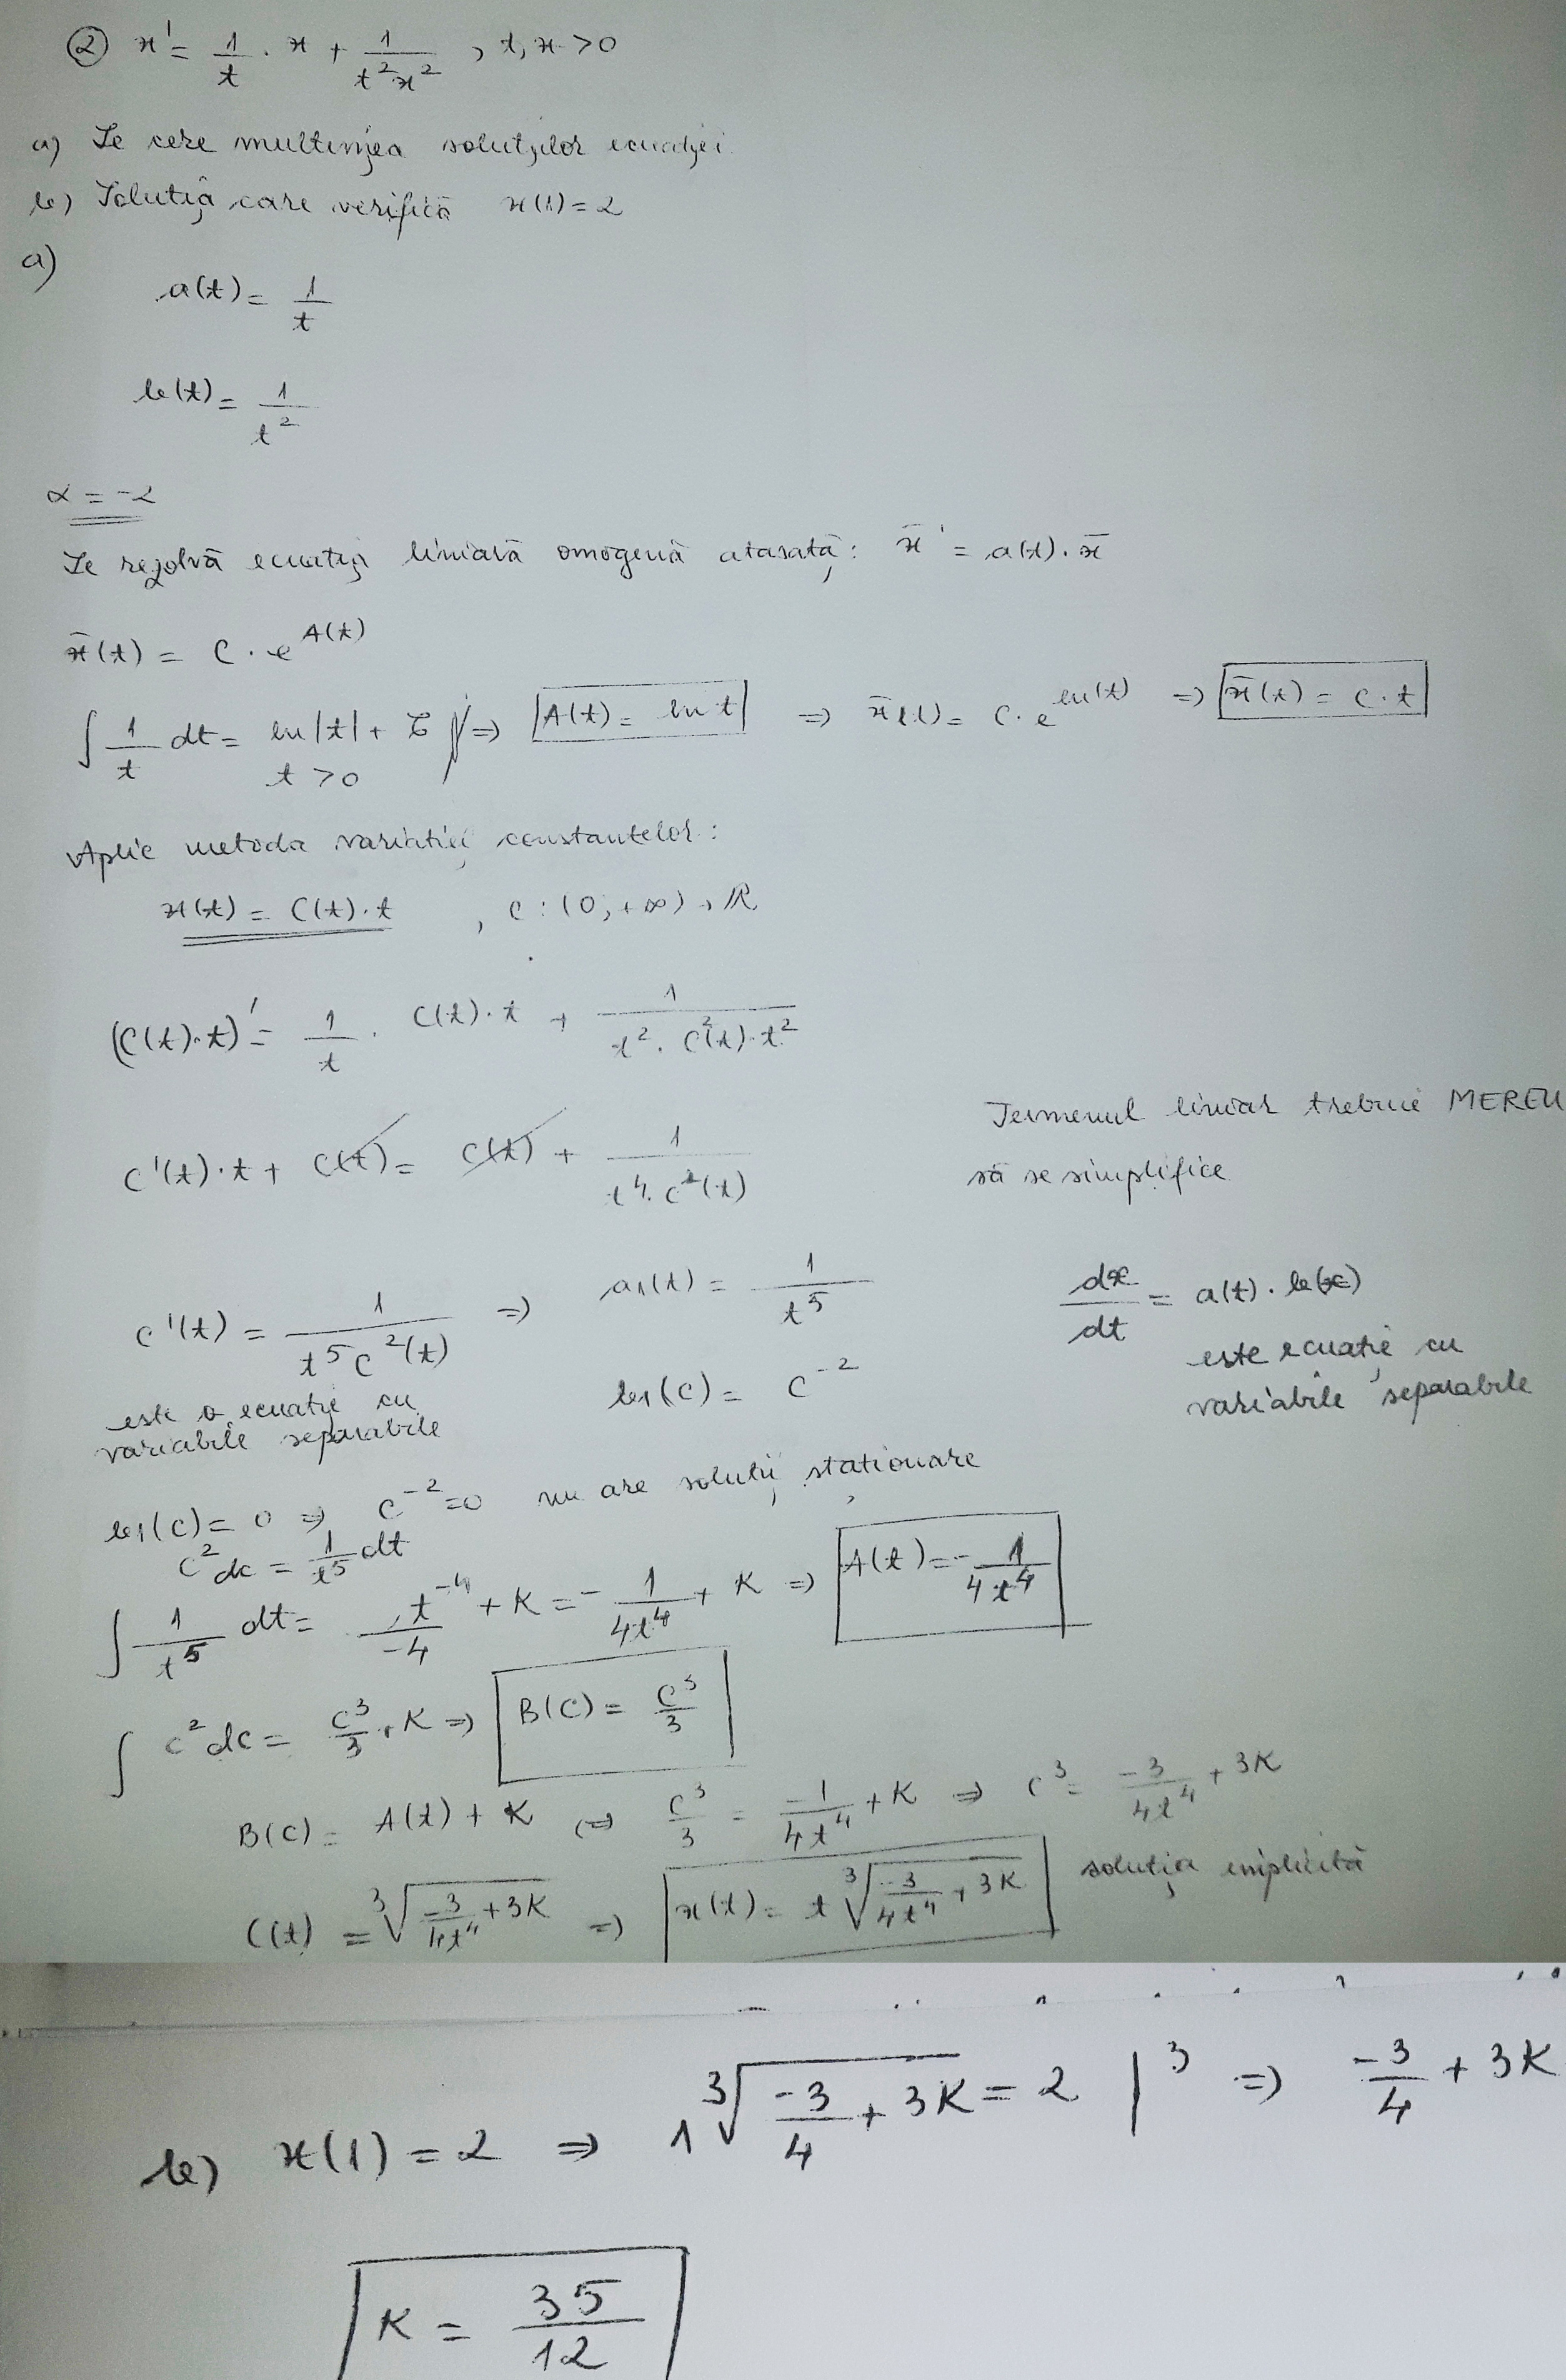 ② x' = 1/t · x + 1/(t²x²) , t, x > 0
a) Se cere mulțimea soluțiilor ecuației.
b) Soluția care verifică x(1) = 2
a)
a(t) = 1/t
b(t) = 1/t²
α = -2
Se rezolvă ecuația liniară omogenă atașată: x̄' = a(t) · x̄
x̄(t) = C · e^A(t)
∫ 1/t dt = ln|t| + C ⇒ A(t) = ln t ⇒ x̄(t) = C · e^ln(t) ⇒ x̄(t) = C · t
t > 0
Aplic metoda variației constantelor:
x(t) = C(t) · t , C : (0, +∞) → R
(C(t) · t)' = 1/t · C(t) · t + 1/(t² · C²(t) · t²)
Termenul liniar trebuie MEREU
să se simplifice
C'(t) · t + C(t) = C(t) + 1/(t⁴ · C²(t))
C'(t) = 1/(t⁵ C²(t)) ⇒ a₁(t) = 1/t⁵
b₁(C) = C⁻²
dx/dt = a(t) · b(x)
este ecuație cu
variabile separabile
este o ecuație cu
variabile separabile
b₁(C) = 0 ⇒ C⁻² = 0 nu are soluții staționare
C² dc = 1/t⁵ dt
∫ 1/t⁵ dt = t⁻⁴/-4 + K = - 1/4t⁴ + K ⇒ A(t) = - 1/4t⁴
∫ C² dc = C³/3 + K ⇒ B(C) = C³/3
B(C) = A(t) + K ⇔ C³/3 = -1/4t⁴ + K ⇒ C³ = -3/4t⁴ + 3K
C(t) = ∛(-3/4t⁴ + 3K) ⇒ x(t) = t ∛(-3/4t⁴ + 3K) soluția implicită
b) x(1) = 2 ⇒ 1 ∛(-3/4 + 3K) = 2 |³ ⇒ -3/4 + 3K
K = 35/12